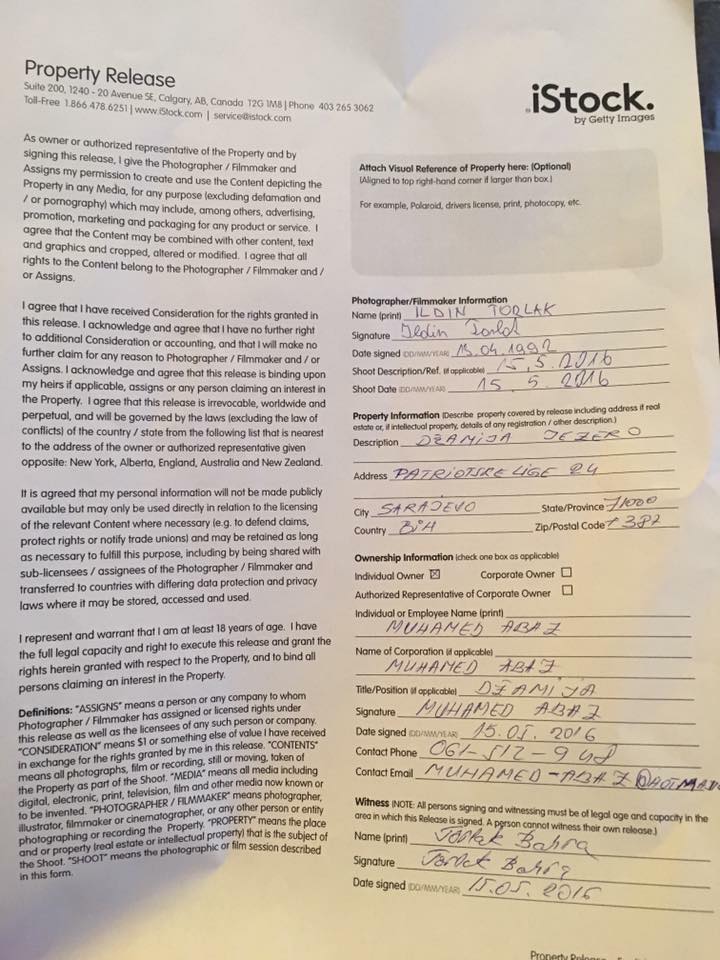 Property Release
Suite 200, 1240 - 20 Avenue SE, Calgary, AB, Canada T2G 1M8 | Phone 403 265 3062
Toll-Free 1.866 478.6251 | www.iStock.com | service@istock.com
iStock.
by Getty Images
As owner or authorized representative of the Property and by
signing this release, I give the Photographer / Filmmaker and
Assigns my permission to create and use the Content depicting the
Property in any Media, for any purpose (excluding defamation and
/ or pornography) which may include, among others, advertising,
promotion, marketing and packaging for any product or service. I
agree that the Content may be combined with other content, text
and graphics and cropped, altered or modified. I agree that all
rights to the Content belong to the Photographer / Filmmaker and /
or Assigns.
I agree that I have received Consideration for the rights granted in
this release. I acknowledge and agree that I have no further right
to additional Consideration or accounting, and that I will make no
further claim for any reason to Photographer / Filmmaker and / or
Assigns. I acknowledge and agree that this release is binding upon
my heirs if applicable, assigns or any person claiming an interest in
the Property. I agree that this release is irrevocable, worldwide and
perpetual, and will be governed by the laws (excluding the law of
conflicts) of the country / state from the following list that is nearest
to the address of the owner or authorized representative given
opposite: New York, Alberta, England, Australia and New Zealand.
It is agreed that my personal information will not be made publicly
available but may only be used directly in relation to the licensing
of the relevant Content where necessary (e.g. to defend claims,
protect rights or notify trade unions) and may be retained as long
as necessary to fulfill this purpose, including by being shared with
sub-licensees / assignees of the Photographer / Filmmaker and
transferred to countries with differing data protection and privacy
laws where it may be stored, accessed and used.
I represent and warrant that I am at least 18 years of age. I have
the full legal capacity and right to execute this release and grant the
rights herein granted with respect to the Property, and to bind all
persons claiming an interest in the Property.
Definitions: "ASSIGNS" means a person or any company to whom
Photographer / Filmmaker has assigned or licensed rights under
this release as well as the licensees of any such person or company.
"CONSIDERATION" means $1 or something else of value I have received
in exchange for the rights granted by me in this release. "CONTENTS"
means all photographs, film or recording, still or moving, taken of
the Property as part of the Shoot. "MEDIA" means all media including
digital, electronic, print, television, film and other media now known or
to be invented. "PHOTOGRAPHER / FILMMAKER" means photographer,
illustrator, filmmaker or cinematographer, or any other person or entity
photographing or recording the Property. "PROPERTY" means the place
and or property (real estate or intellectual property) that is the subject of
the Shoot. "SHOOT" means the photographic or film session described
in this form.
Attach Visual Reference of Property here: (Optional)
(Aligned to top right-hand corner if larger than box.)
For example, Polaroid, drivers license, print, photocopy, etc.
Photographer/Filmmaker Information
Name (print) ILDIN TORLAK
Signature Ildin Torlak
Date signed (DD/MM/YEAR) 13.04.1992
Shoot Description/Ref. (if applicable) 15.5.2016
Shoot Date (DD/MM/YEAR) 15.5.2016
Property Information (Describe property covered by release including address if real
estate or, if intellectual property, details of any registration / other description.)
Description DŽAMIJA JEZERO
Address PATRIOTSKE LIGE 24
City SARAJEVO State/Province 71000
Country BiH Zip/Postal Code +387
Ownership Information (check one box as applicable)
Individual Owner ☒ Corporate Owner ☐
Authorized Representative of Corporate Owner ☐
Individual or Employee Name (print)
MUHAMED ABAZ
Name of Corporation (if applicable)
MUHAMED ABAZ
Title/Position (if applicable) DŽAMIJA
Signature MUHAMED ABAZ
Date signed (DD/MM/YEAR) 15.05.2016
Contact Phone 061-512-948
Contact Email MUHAMED-ABAZ@HOTMA
Witness (NOTE: All persons signing and witnessing must be of legal age and capacity in the
area in which this Release is signed. A person cannot witness their own release.)
Name (print) Torlak Bahra
Signature Torlak Bahra
Date signed (DD/MM/YEAR) 15.05.2016
Property Release